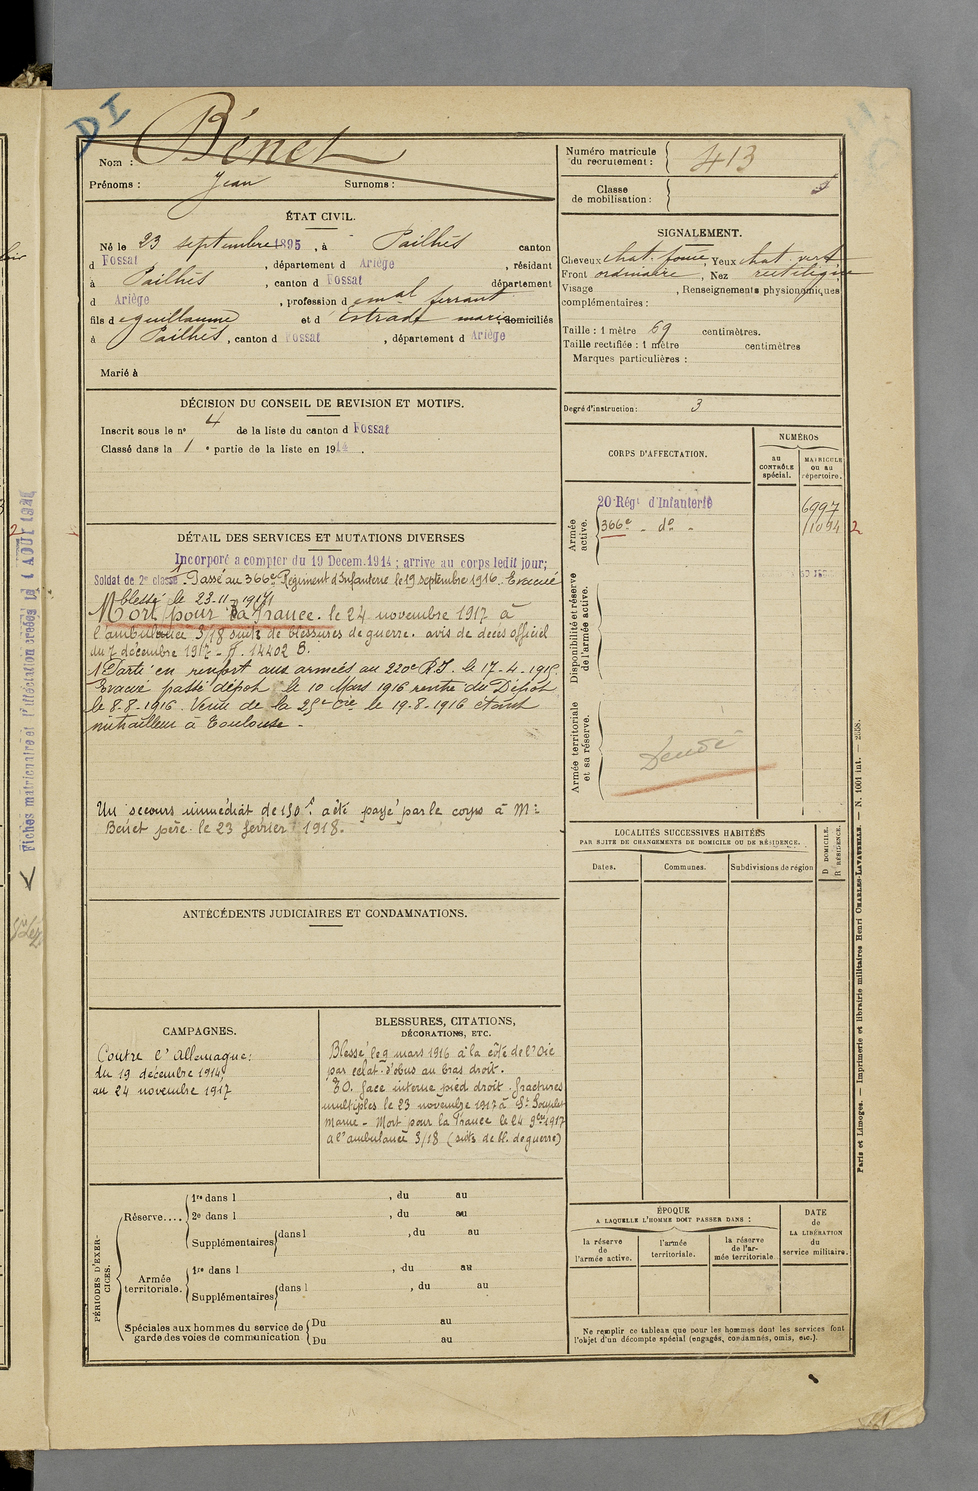 DI
Nom : Bénet
Prénoms : Jean Surnoms :
ÉTAT CIVIL.
Né le 23 septembre 1895, à Pailhès canton
d Fossat, département d Ariège, résidant
à Pailhès, canton d Fossat département
d Ariège, profession d emal ferrant
fils d e guillaume et d'Estrade marie, domiciliés
à Pailhès, canton d Fossat, département d Ariège
Marié à
DÉCISION DU CONSEIL DE REVISION ET MOTIFS.
Inscrit sous le nº 4 de la liste du canton d Fossat
Classé dans la 1 e partie de la liste en 1914.
DÉTAIL DES SERVICES ET MUTATIONS DIVERSES
Incorporé a compter du 19 Decem. 1914 ; arrive au corps ledit jour;
Soldat de 2e classe. Passé au 366e Régiment d'Infanterie le 19 septembre 1916. Evacué
blessé le 23-11-1917
Mort pour la France. le 24 novembre 1917 à
l'ambulance 3/18 suite de blessures de guerre. avis de décès officiel
du 7 décembre 1917 - 14402 B.
Parti en renfort aux armées au 220e R.I. le 17-4-1915.
Evacué passé dépot le 10 Mars 1916 rentré du Dépot
le 8-8-1916. Venu de la 25e Cie le 19-8-1916 étant
mitrailleur à Toulouse -
Un secours immédiat de 150f. a été payé par le corps à Mr
Benet père le 23 fevrier 1918.
ANTÉCÉDENTS JUDICIAIRES ET CONDAMNATIONS.
CAMPAGNES.
Contre l'Allemagne:
du 19 décembre 1914
au 24 novembre 1917
BLESSURES, CITATIONS,
DÉCORATIONS, ETC.
Blessé le 9 mars 1916 à la côte de l'Oie
par éclat d'obus au bras droit.
E.O. face interne pied droit fractures
multiples le 23 novembre 1917 à St Souplet
Marne - Mort pour la France le 24 9bre 1917
à l'ambulance 3/18 (suite de bl. de guerre)
PÉRIODES D'EXERCICES.
Réserve....
1re dans l , du au
2e dans l , du au
Supplémentaires dans l , du au
Armée
territoriale.
1re dans l , du au
Supplémentaires dans l , du au
Spéciales aux hommes du service de
garde des voies de communication
Du au
Du au
Numéro matricule
du recrutement : 413
Classe
de mobilisation :
SIGNALEMENT.
Cheveux chat. foncé, Yeux chat. vert
Front ordinaire, Nez rectiligne
Visage , Renseignements physionomiques
complémentaires :
Taille : 1 mètre 69 centimètres.
Taille rectifiée : 1 mètre centimètres
Marques particulières :
Degré d'instruction : 3
CORPS D'AFFECTATION.
NUMÉROS
au
CONTRÔLE
spécial.
MATRICULE
ou au
répertoire.
Armée
active.
20 Régt d'Infanterie 6997
366e - do - 11094 2
Disponibilité et réserve
de l'armée active.
Armée territoriale
et sa réserve.
LOCALITÉS SUCCESSIVES HABITÉES
PAR SUITE DE CHANGEMENTS DE DOMICILE OU DE RÉSIDENCE.
D DOMICILE.
R RÉSIDENCE.
Dates. Communes. Subdivisions de région
ÉPOQUE
A LAQUELLE L'HOMME DOIT PASSER DANS :
la réserve
de
l'armée active.
l'armée
territoriale.
la réserve
de l'ar-
mée territoriale.
DATE
de
LA LIBÉRATION
du
service militaire.
Ne remplir ce tableau que pour les hommes dont les services font
l'objet d'un décompte spécial (engagés, condamnés, omis, etc.).
Paris et Limoges. — Imprimerie et librairie militaires Henri CHARLES-LAVAUZELLE. — N. 1001 int. — 2558.
Fiches matriculaire et d'affectation creées le 1 AOUT